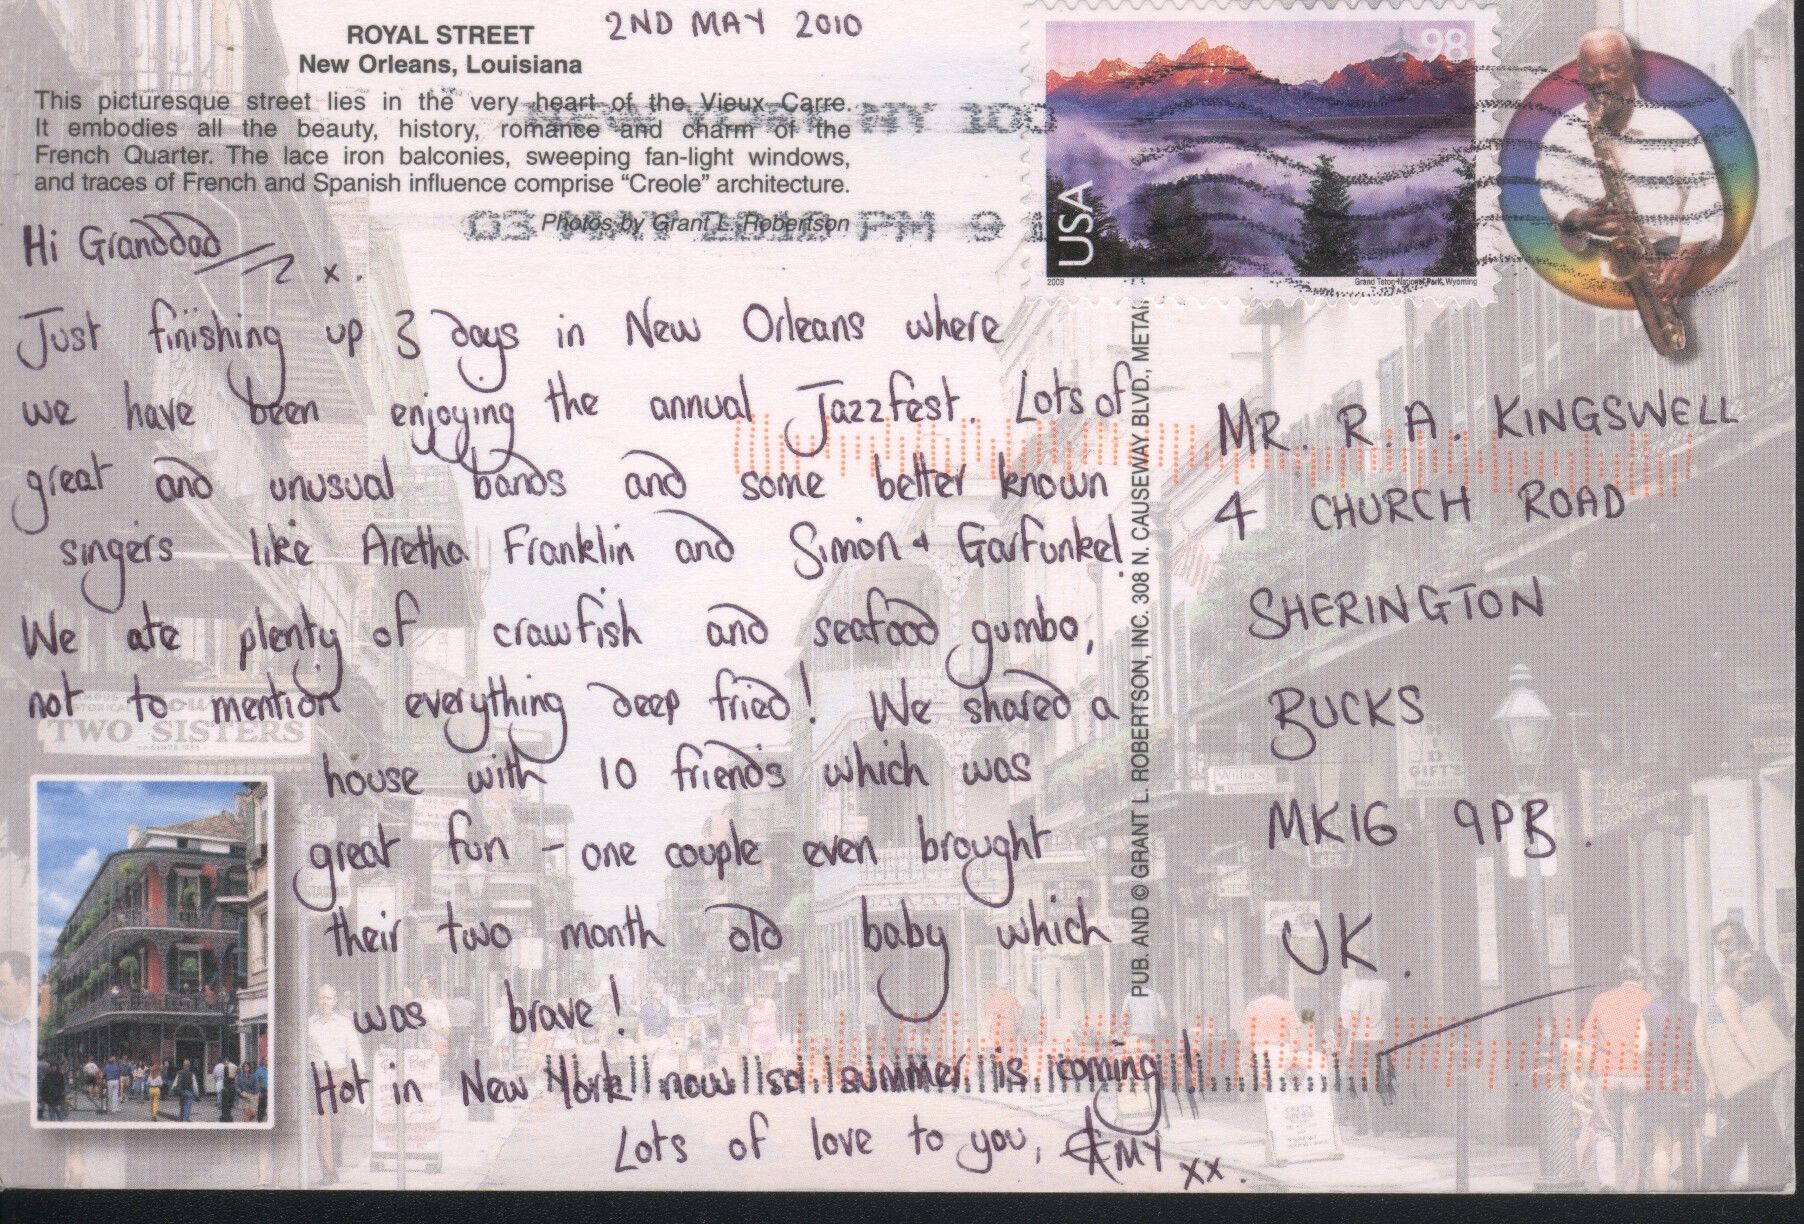 ROYAL STREET
New Orleans, Louisiana
2ND MAY 2010
This picturesque street lies in the very heart of the Vieux Carre.
It embodies all the beauty, history, romance and charm of the
French Quarter. The lace iron balconies, sweeping fan-light windows,
and traces of French and Spanish influence comprise “Creole” architecture.
Photos by Grant L. Robertson
NEW YORK NY 100
03 MAY 2010 PM 9
98
USA
2009
Grand Teton National Park, Wyoming
Hi Granddad x.
Just finishing up 3 days in New Orleans where
we have been enjoying the annual Jazzfest. Lots of
great and unusual bands and some better known
singers like Aretha Franklin and Simon + Garfunkel.
We ate plenty of crawfish and seafood gumbo,
not to mention everything deep fried! We shared a
house with 10 friends which was
great fun - one couple even brought
their two month old baby which
was brave!
Hot in New York now so summer is coming!
Lots of love to you, AMY xx.
PUB. AND © GRANT L. ROBERTSON, INC. 308 N. CAUSEWAY BLVD., METAI
MR. R. A. KINGSWELL
4 CHURCH ROAD
SHERINGTON
BUCKS
MK16 9PB.
UK.
TWO SISTERS
GIFTS